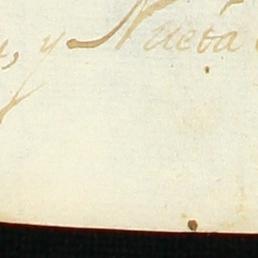 y Nueba